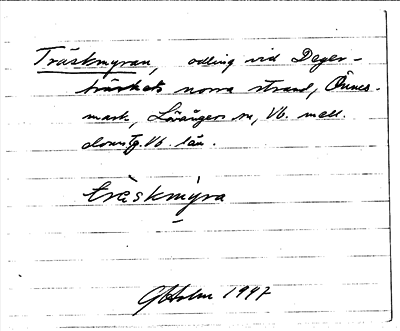 Träskmyran, odling vid Deger-
träskets norra strand, Önnes-
mark, Lövångers sn, Vb. mell.
domsg. Vb. län.
träskmýra
GHolm 1947